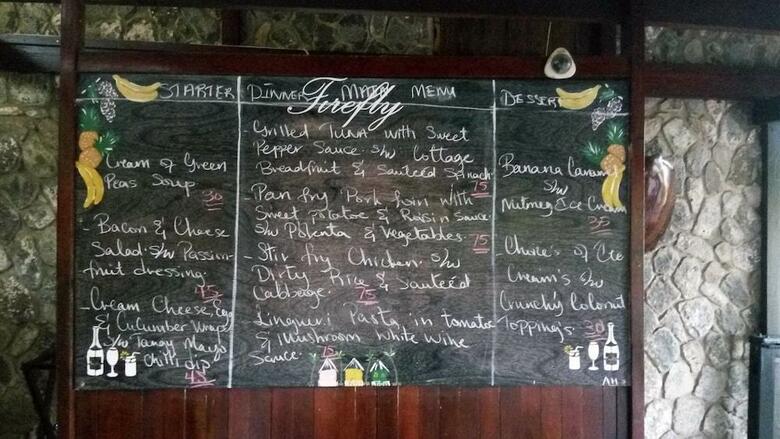 STARTER
Cream of Green
Peas Soup
30
- Bacon & Cheese
Salad s/w Passion
fruit dressing.
45
- Cream Cheese, egg
& Cucumber Wraps
s/w Tangy Mayo
Chilli dip
45
DINNER MAIN MENU
Firefly
- Grilled Tuna with Sweet
Pepper Sauce s/w Cottage
Breadfruit & Sautéed Spinach
75
- Pan fry Pork loin with
Sweet potatoe & Raisin Sauce
s/w Polenta & Vegetables.
75
- Stir fry Chicken s/w
Dirty Rice & Sautéed
Cabbage.
75
Linqueri Pasta in tomatoe
& Mushroom White Wine
Sauce.
75
DESSERT
Banana Caramel
s/w
Nutmeg Ice Cream
35
- Choice's of Ice
Cream's s/w
Crunchy Coconut
Topping's
30